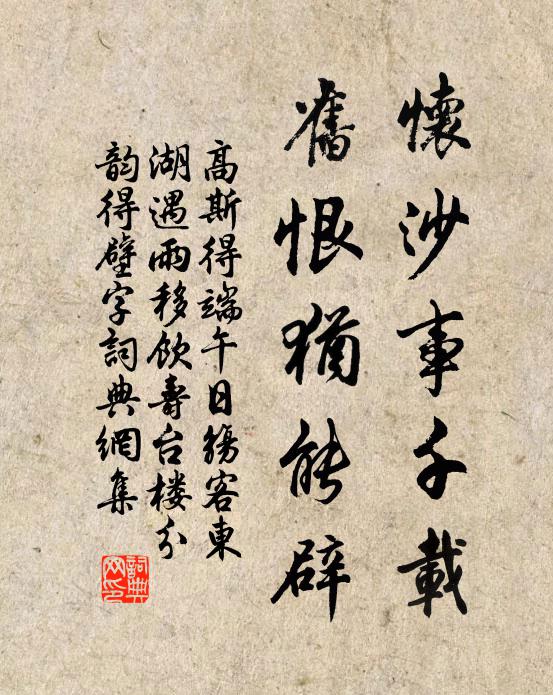 懷沙事千載
舊恨猶能辟
高斯得端午日觴客東
湖遇雨移飲壽台楼分
韵得壁字詞典網集
詞典网印